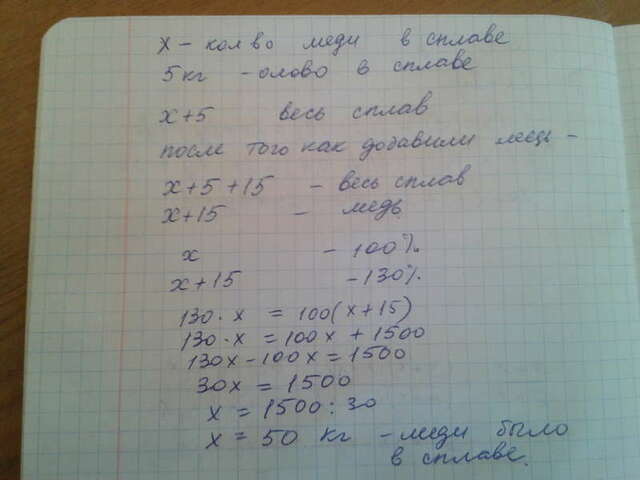 x - кол во меди в сплаве
5 кг - олово в сплаве
x+5 весь сплав
после того как добавили медь -
x+5+15 - весь сплав
x+15 - медь
x - 100%
x+15 - 130%
130·x = 100(x+15)
130·x = 100x + 1500
130x - 100x = 1500
30x = 1500
x = 1500 : 30
x = 50 кг - меди было
в сплаве.